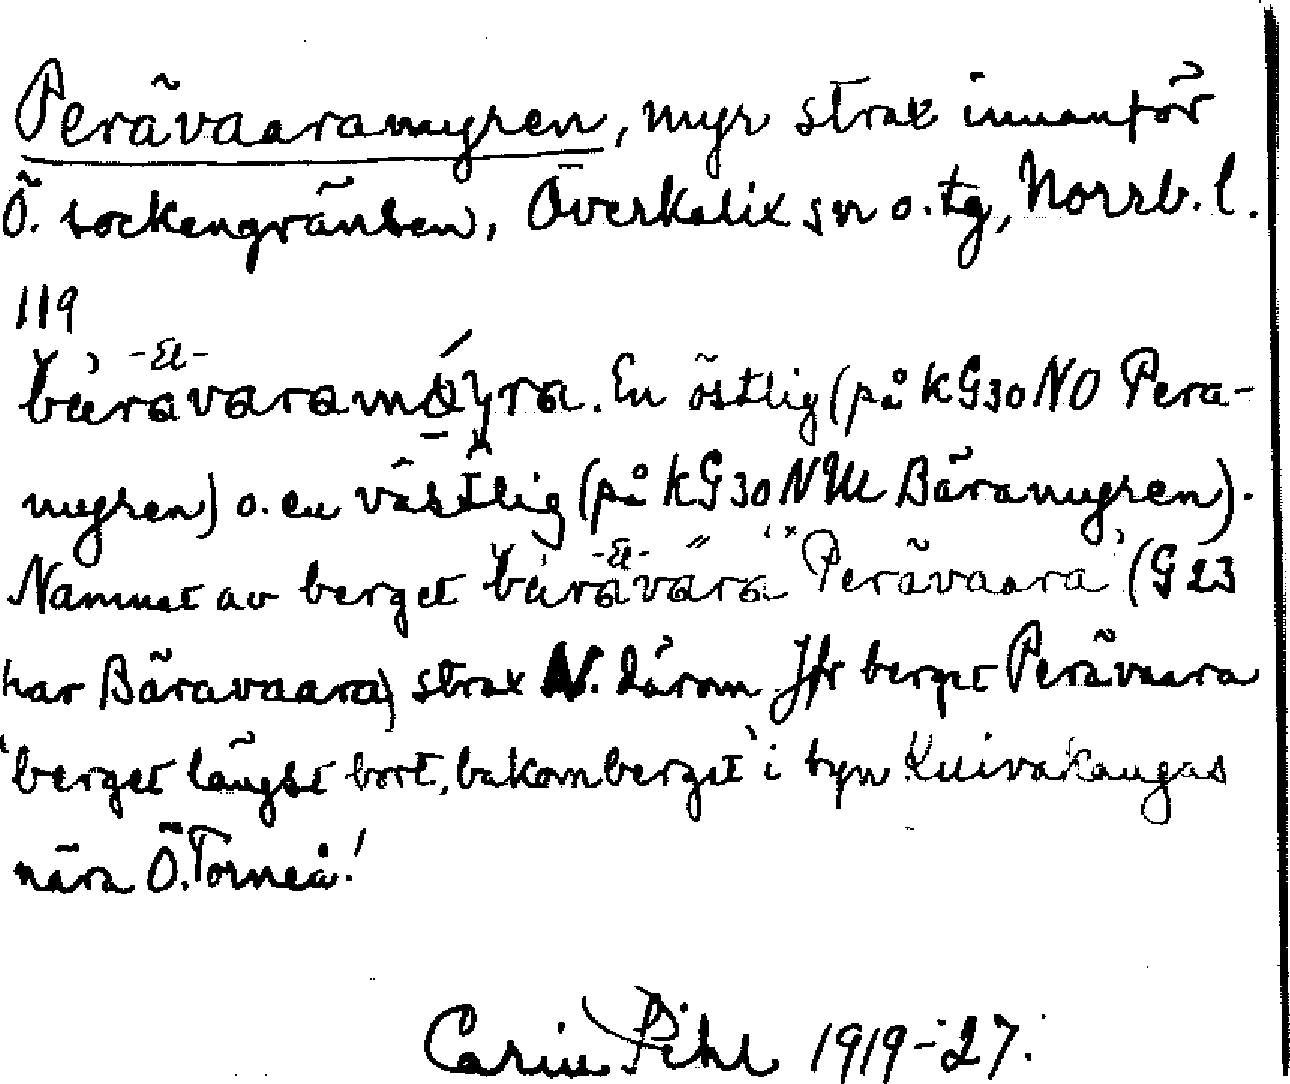 Perävaaramyren, myr strax innanför
Ö. sockengränsen, Överkalix sn o. tg, Norrb. l.
119
-ɛ-
En östlig (på kG30NO Pera-
myren) o. en västlig (på kG30NW Bäramyren).
-ɛ-
Namnet av berget Perävaara (G23
har Bäravaara) strax N. därom Jfr berget Perävaara
'berget längst bort, bakomberget' i byn Kuivakangas
nära Ö. Torneå!
Carin Pihl 1919-27.